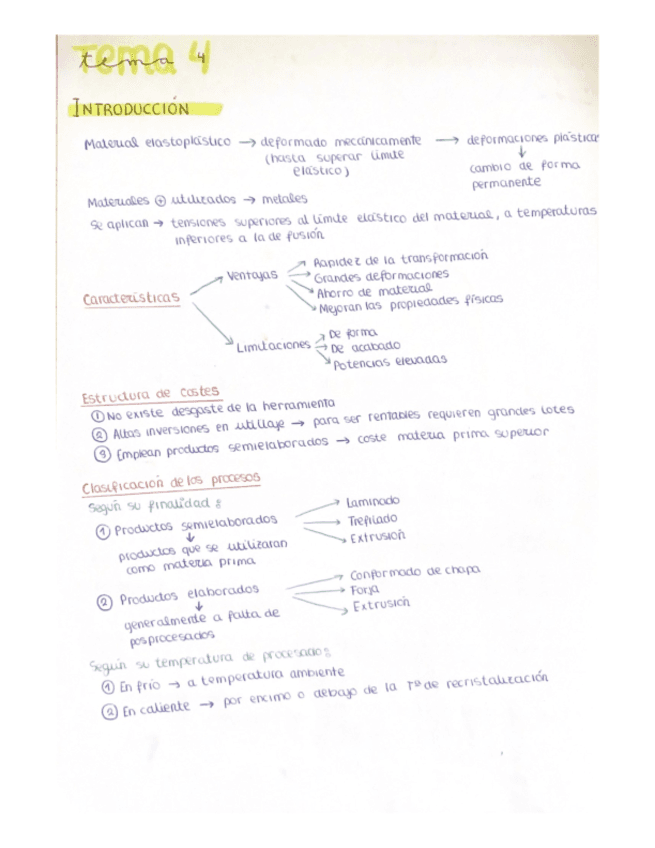 tema 4
INTRODUCCIÓN
Material elastoplástico → deformado mecánicamente → deformaciones plásticas
(hasta superar límite ↓
elástico) cambio de forma
permanente
Materiales ⊕ utilizados → metales
Se aplican → tensiones superiores al límite elástico del material, a temperaturas
inferiores a la de fusión
Características
Ventajas
Rapidez de la transformación
Grandes deformaciones
Ahorro de material
Mejoran las propiedades físicas
Limitaciones
De forma
De acabado
Potencias elevadas
Estructura de costes
① No existe desgaste de la herramienta
② Altas inversiones en utillaje → para ser rentables requieren grandes lotes
③ Emplean productos semielaborados → coste materia prima superior
Clasificación de los procesos
Según su finalidad:
① Productos semielaborados
↓
productos que se utilizaran
como materia prima
Laminado
Trefilado
Extrusión
② Productos elaborados
↓
generalmente a falta de
posprocesados
Conformado de chapa
Forja
Extrusión
Según su temperatura de procesado:
① En frío → a temperatura ambiente
② En caliente → por encima o debajo de la Tª de recristalización